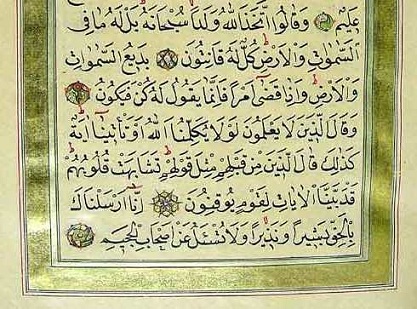 عَلِيمٌ وَقَالُوا اتَّخَذَ اللهُ وَلَدًا سُبْحَانَهُ بَلْ لَهُ مَا فِي
السَّمٰوَاتِ وَالْاَرْضِ كُلٌّ لَهُ قَانِتُونَ بَدِيعُ السَّمٰوَاتِ
وَالْاَرْضِ وَاِذَا قَضٰى اَمْرًا فَاِنَّمَا يَقُولُ لَهُ كُنْ فَيَكُونُ
وَقَالَ الَّذِينَ لَا يَعْلَمُونَ لَوْلَا يُكَلِّمُنَا اللهُ اَوْ تَأْتِينَا اٰيَةٌ
كَذٰلِكَ قَالَ الَّذِينَ مِنْ قَبْلِهِمْ مِثْلَ قَوْلِهِمْ تَشَابَهَتْ قُلُوبُهُمْ
قَدْ بَيَّنَّا الْاٰيَاتِ لِقَوْمٍ يُوقِنُونَ اِنَّا اَرْسَلْنَاكَ
بِالْحَقِّ بَشِيرًا وَنَذِيرًا وَلَا تُسْئَلُ عَنْ اَصْحَابِ الْجَحِيمِ